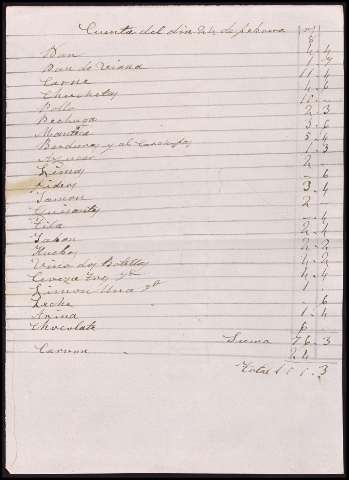 Cuenta del dia 24 de febrero
Pan 4 - 4
Pan de Viana 1 - 7
Carne 11 - 4
Chuletas 4 - 6
Pollo 12 -
Pechuga 2 - 3
Manteca 3 - 6
Berduras y al 5 - 4
Azucar 1 - 3
Lima 2 -
Fideos - 6
Jamon 3 - 4
Guisantes 2
Tila - 4
Jabon 2 - 4
Huebos 2 - 2
Vino dos Botellas 4 - 2
Cerveza tres 4 - 4
Limon Una 1 -
Leche - 6
Arina 1 - 4
Chocolate 6 -
Suma 76 - 3
Carvon 24
Total 3